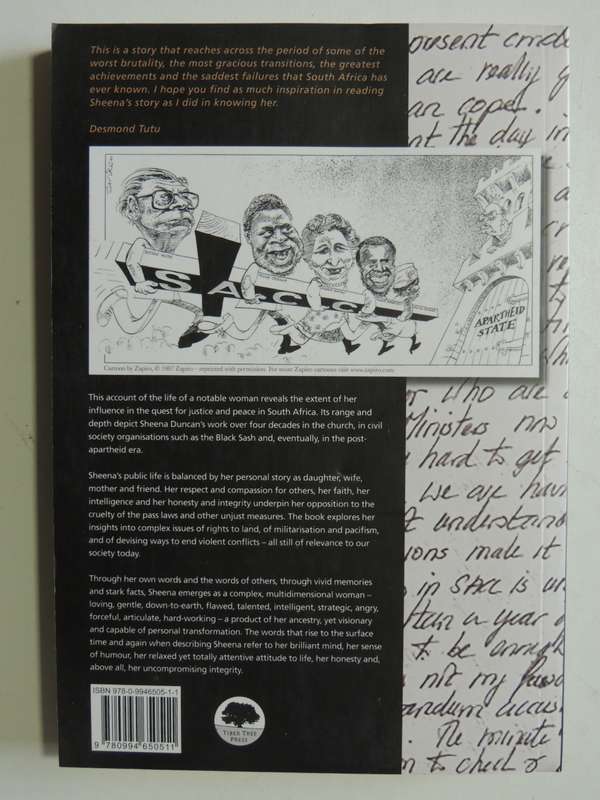 This is a story that reaches across the period of some of the
worst brutality, the most gracious transitions, the greatest
achievements and the saddest failures that South Africa has
ever known. I hope you find as much inspiration in reading
Sheena's story as I did in knowing her.
Desmond Tutu
S.A.C.C.
APARTHEID
STATE
Cartoon by Zapiro, © 1987 Zapiro - reprinted with permission. For more Zapiro cartoons visit www.zapiro.com
This account of the life of a notable woman reveals the extent of her
influence in the quest for justice and peace in South Africa. Its range and
depth depict Sheena Duncan's work over four decades in the church, in civil
society organisations such as the Black Sash and, eventually, in the post-
apartheid era.
Sheena's public life is balanced by her personal story as daughter, wife,
mother and friend. Her respect and compassion for others, her faith, her
intelligence and her honesty and integrity underpin her opposition to the
cruelty of the pass laws and other unjust measures. The book explores her
insights into complex issues of rights to land, of militarisation and pacifism,
and of devising ways to end violent conflicts – all still of relevance to our
society today.
Through her own words and the words of others, through vivid memories
and stark facts, Sheena emerges as a complex, multidimensional woman –
loving, gentle, down-to-earth, flawed, talented, intelligent, strategic, angry,
forceful, articulate, hard-working – a product of her ancestry, yet visionary
and capable of personal transformation. The words that rise to the surface
time and again when describing Sheena refer to her brilliant mind, her sense
of humour, her relaxed yet totally attentive attitude to life, her honesty and,
above all, her uncompromising integrity.
ISBN 978-0-9946505-1-1
9 780994 650511
TIBER TREE
PRESS
present
are really
cope.
the day in
Who are
Ministers
hard to get
we are
understand
make it
in SACC is
than a year
to be enough
not my
The minute
to check